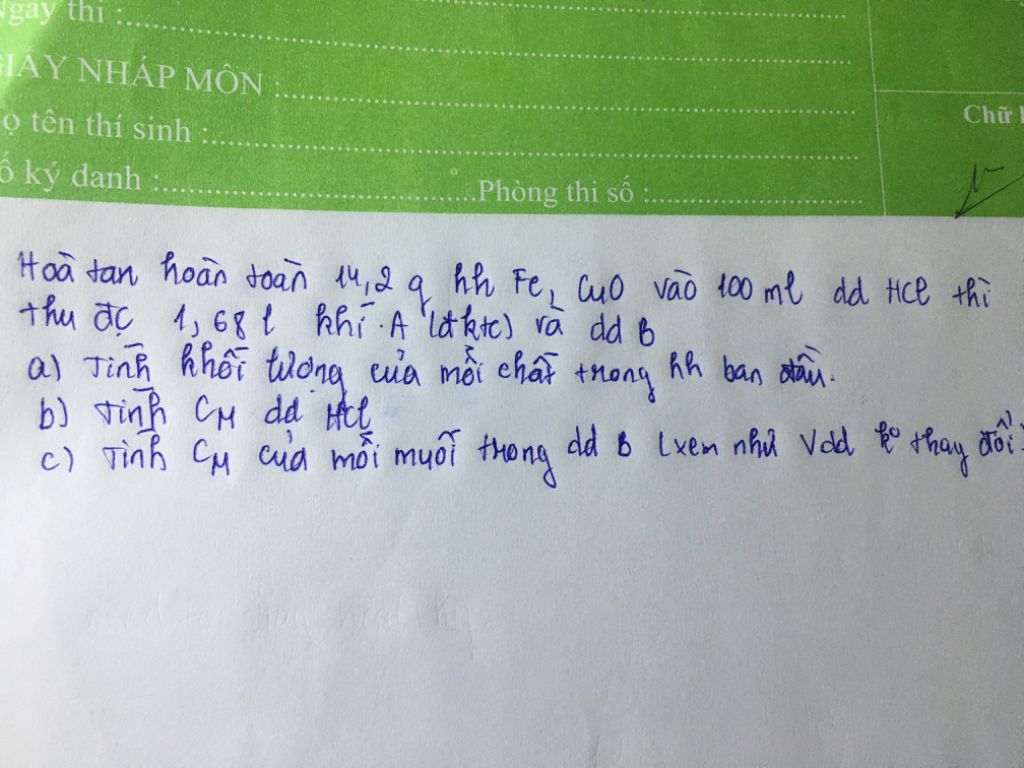 Ngày thi :
GIẤY NHÁP MÔN :
ọ tên thí sinh :
ố ký danh :
Phòng thi số :
Chữ
Hoà tan hoàn toàn 14,2 g hh Fe, CuO vào 100 ml dd HCl thì
thu đc 1,68 l khí A (đktc) và dd B
a) Tính khối lượng của mỗi chất trong hh ban đầu.
b) Tính CM dd HCl
c) Tính CM của mỗi muối trong dd B (xem như Vdd ko thay đổi)